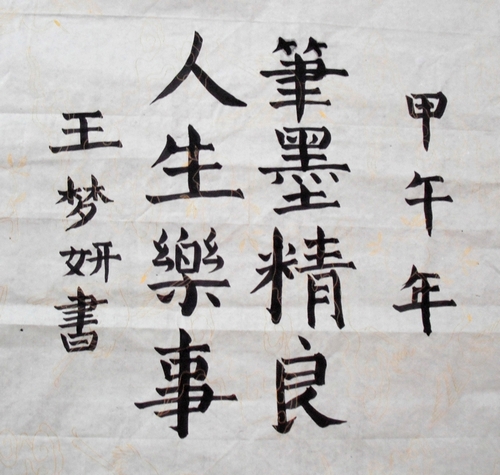 甲午年
筆墨精良
人生樂事
王梦妍書